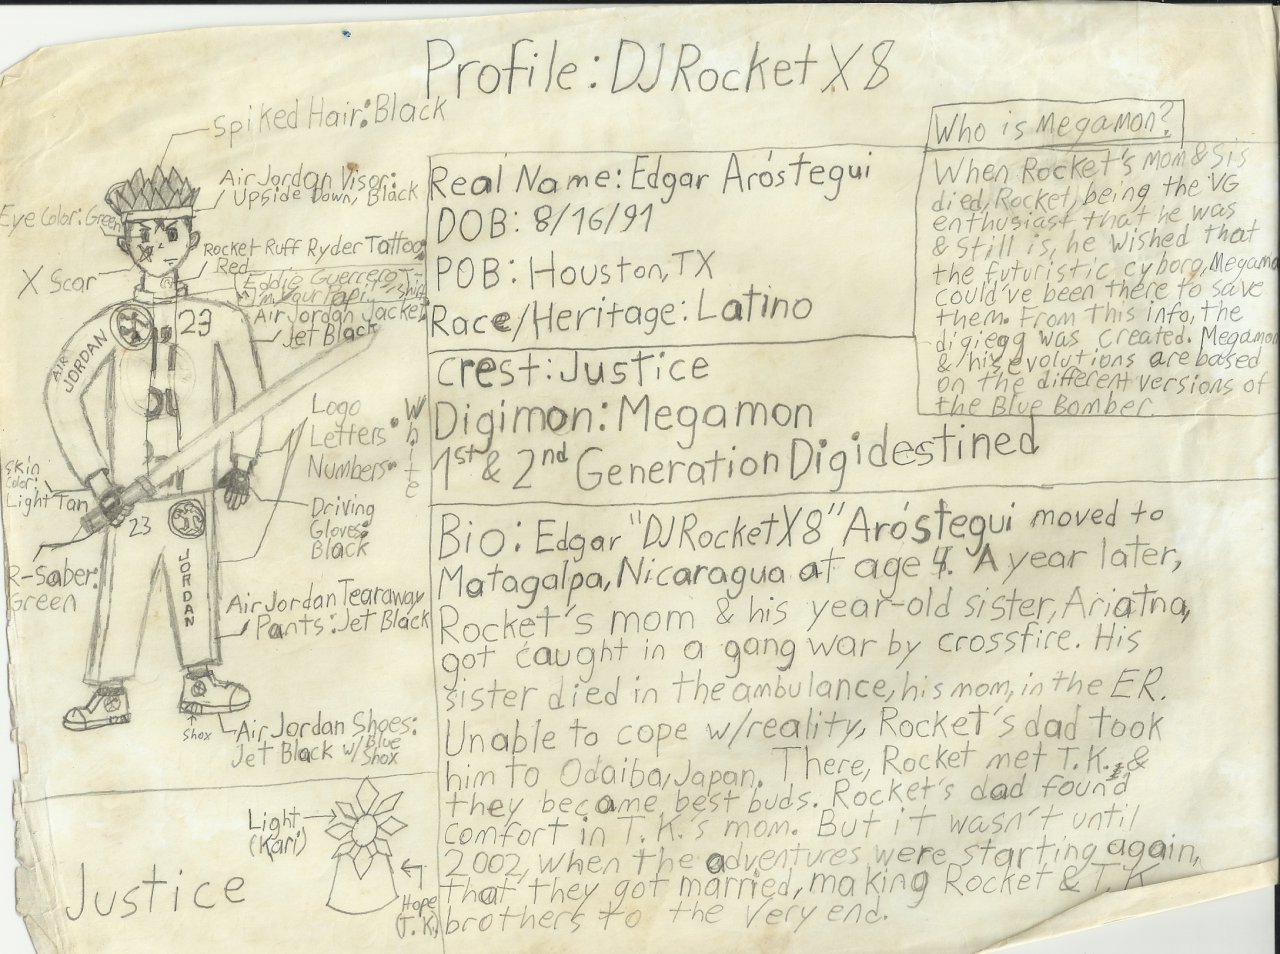 Profile: DJRocketX8
Spiked Hair: Black
Air Jordan Visor:
Upside Down, Black
Eye Color: Green
Rocket Ruff Ryder Tattoo:
Red
X Scar
Eddie Guerrero
"I'm Your Papi" T-Shirt
Air Jordan Jacket:
Jet Black
23
AIR
JORDAN
Logo
Letters
Numbers
White
Skin
Color:
Light Tan
Driving
Gloves:
Black
23
JORDAN
R-Saber:
Green
Air Jordan Tearaway
Pants: Jet Black
Shox
Air Jordan Shoes:
Jet Black w/Blue
Shox
Real Name: Edgar Aróstegui
DOB: 8/16/91
POB: Houston, TX
Race/Heritage: Latino
Crest: Justice
Digimon: Megamon
1st & 2nd Generation Digidestined
Who is Megamon?
When Rocket's mom & sis
died, Rocket, being the VG
enthusiast that he was
& still is, he wished that
the futuristic cyborg, Megaman
could've been there to save
them. From this info, the
digiegg was created. Megamon
& his evolutions are based
on the different versions of
the Blue Bomber.
Bio: Edgar "DJRocketX8" Aróstegui moved to
Matagalpa, Nicaragua at age 4. A year later,
Rocket's mom & his year-old sister, Ariatna,
got caught in a gang war by crossfire. His
sister died in the ambulance, his mom, in the ER.
Unable to cope w/reality, Rocket's dad took
him to Odaiba, Japan. There, Rocket met T.K., &
they became best buds. Rocket's dad found
comfort in T.K.'s mom. But it wasn't until
2002, when the adventures were starting again,
that they got married, making Rocket & T.K.
brothers to the very end.
Light
(Kari)
Hope
(T.K.)
Justice